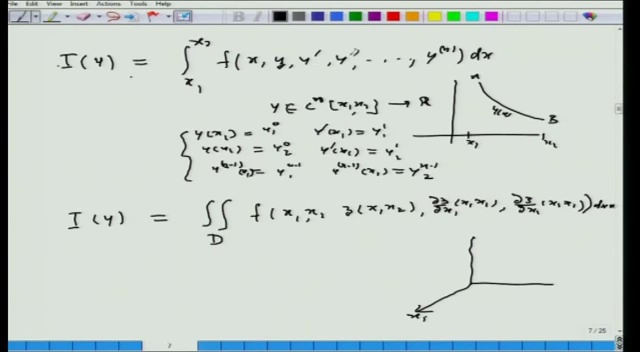 File Edit View Insert Actions Tools Help
I(y) = ∫_{x_1}^{x_2} f(x, y, y', y'', ..., y^{(n)}) dx
y ∈ C^n[x_1, x_2] → R
y(x_1) = y_1^0 y'(x_1) = y_1^1
y(x_2) = y_2^0 y'(x_2) = y_2^1
y^{(n-1)}(x_1) = y_1^{n-1} y^{(n-1)}(x_2) = y_2^{n-1}
A
y(x)
B
x_1 x_2
I(y) = ∬_D f(x_1, x_2, z(x_1 x_2), ∂z/∂x_1 (x_1 x_2), ∂z/∂x_2 (x_1 x_2)) dx
x_1
7 / 25
7